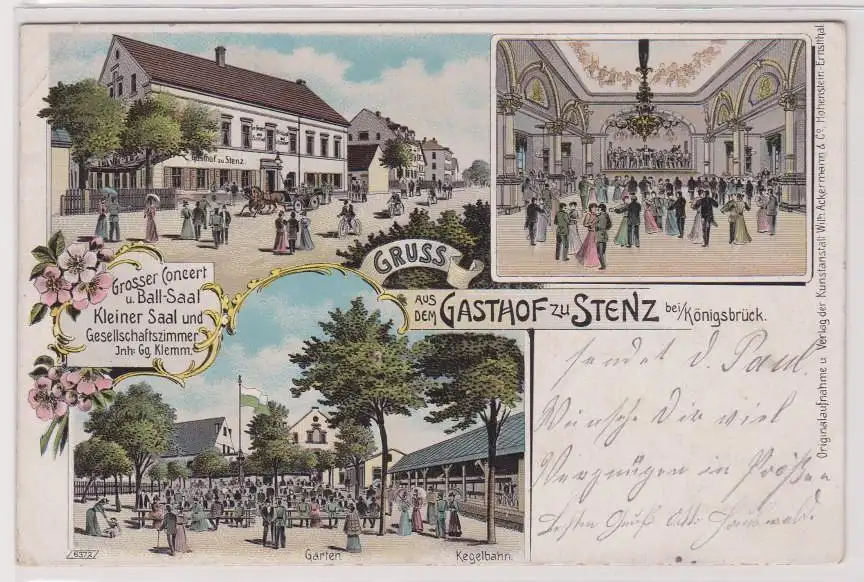 Gasthof zu Stenz.
GRUSS
AUS DEM GASTHOF ZU STENZ bei Königsbrück.
Grosser Concert
u. Ball-Saal
Kleiner Saal und
Gesellschaftszimmer
Inh: Gg. Klemm.
sendet d. Paul.
Wünsche Dir viel
Vergnügen in
Besten Gruß Otto
Garten
Kegelbahn.
5372
Originalaufnahme u. Verlag der Kunstanstalt Wilh. Ackermann & Co, Hohenstein-Ernstthal